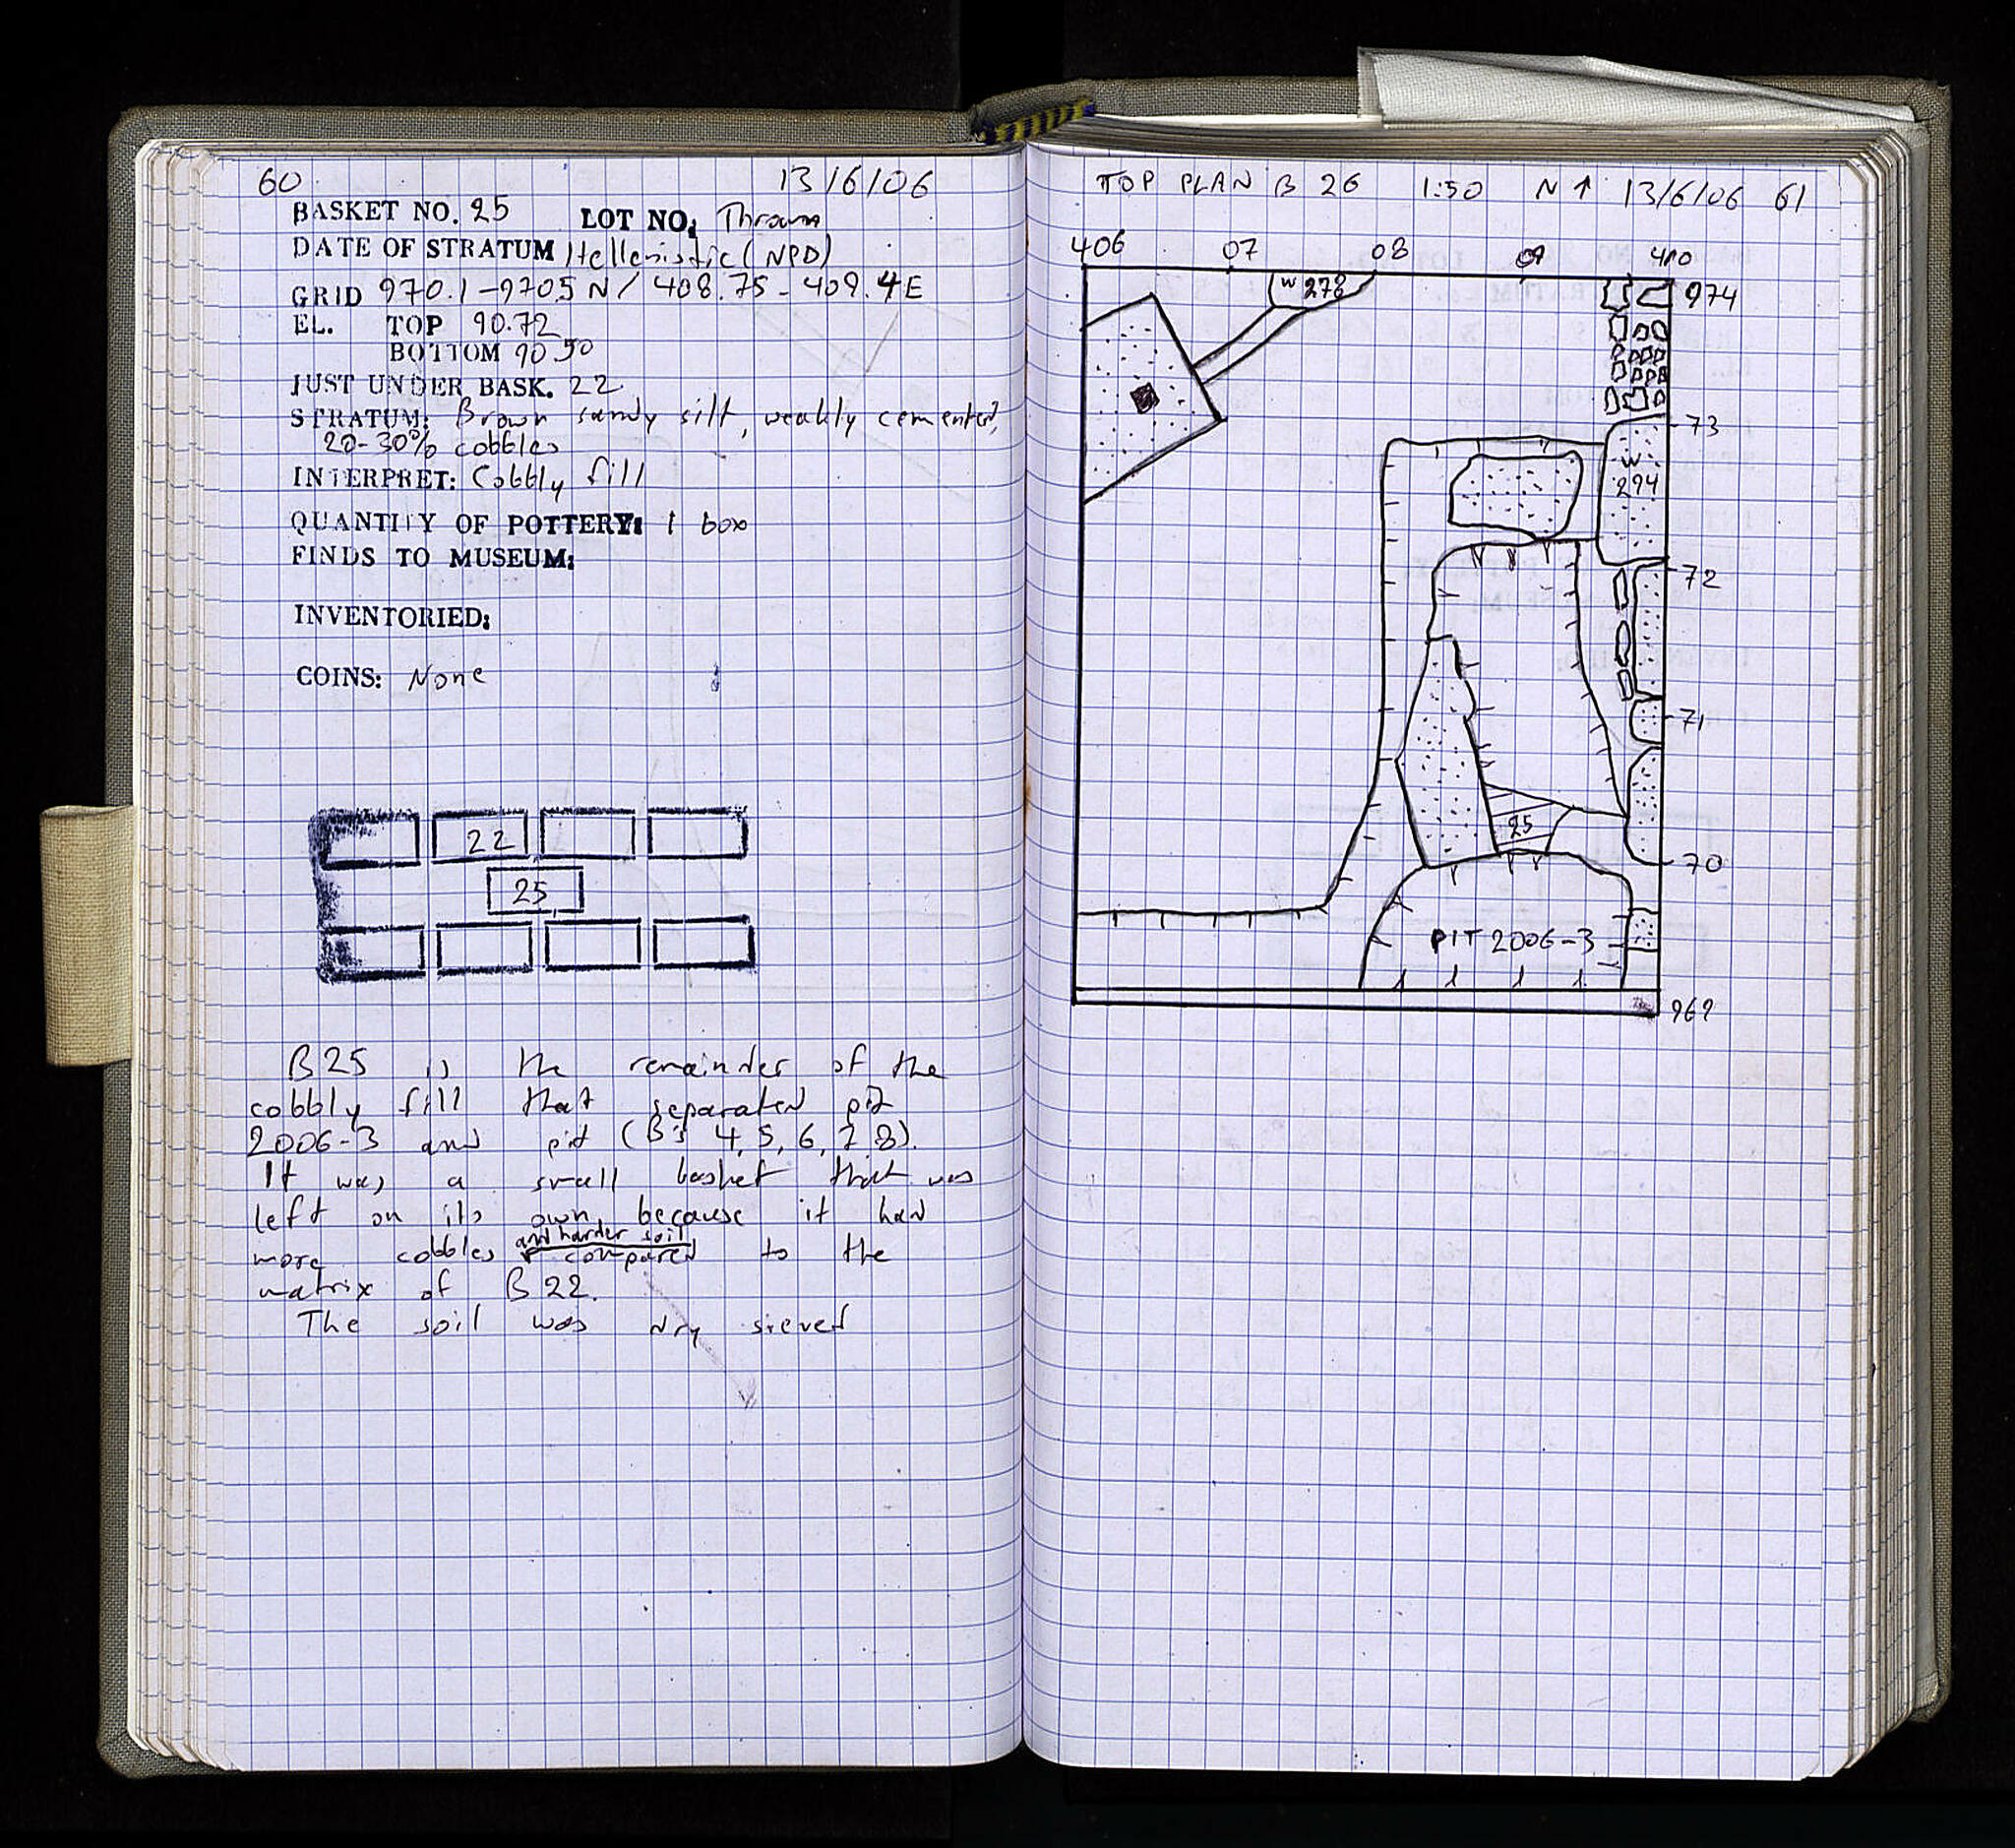 60 13/6/06
BASKET NO. 25 LOT NO: Thrown
DATE OF STRATUM Hellenistic (NPD)
GRID 970.1-970.5 N / 408.75-409.4 E
EL. TOP 90.72
BOTTOM 90.50
JUST UNDER BASK. 22
STRATUM: Brown sandy silt, weakly cemented,
20-30% cobbles
INTERPRET: Cobbly fill
QUANTITY OF POTTERY: 1 box
FINDS TO MUSEUM:
INVENTORIED:
COINS: None
22
25
B25 is the remainder of the
cobbly fill that separated pit
2006-3 and pit (B's 4, 5, 6, 7, 8).
It was a small basket that was
left on its own because it had
and harder soil
more cobbles compared to the
matrix of B 22.
The soil was dry sieved
TOP PLAN B 26 1:50 N↑ 13/6/06 61
406 07 08 09 410
W 278
974
73
W
294
72
71
25
70
PIT 2006-3
969